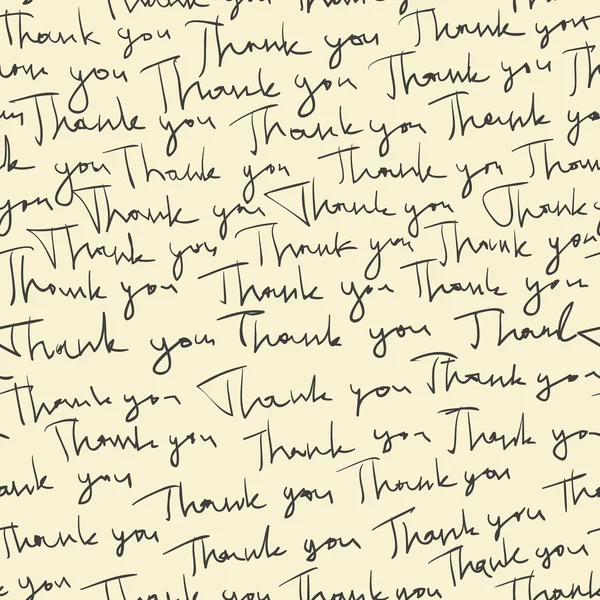 Thank you
Thank you Thank you Thank you
you Thank you Thank you
Thank you Thank you Thank you
you Thank you Thank you
you Thank you Thank you Thank
Thank you Thank you Thank you
Thank you Thank you Thank you
Thank you Thank you
Thank you Thank you Thank you
Thank you Thank you Thank you
you Thank you Thank you
Thank you Thank you Thank you
Thank you
you Thank you Thank you Thank